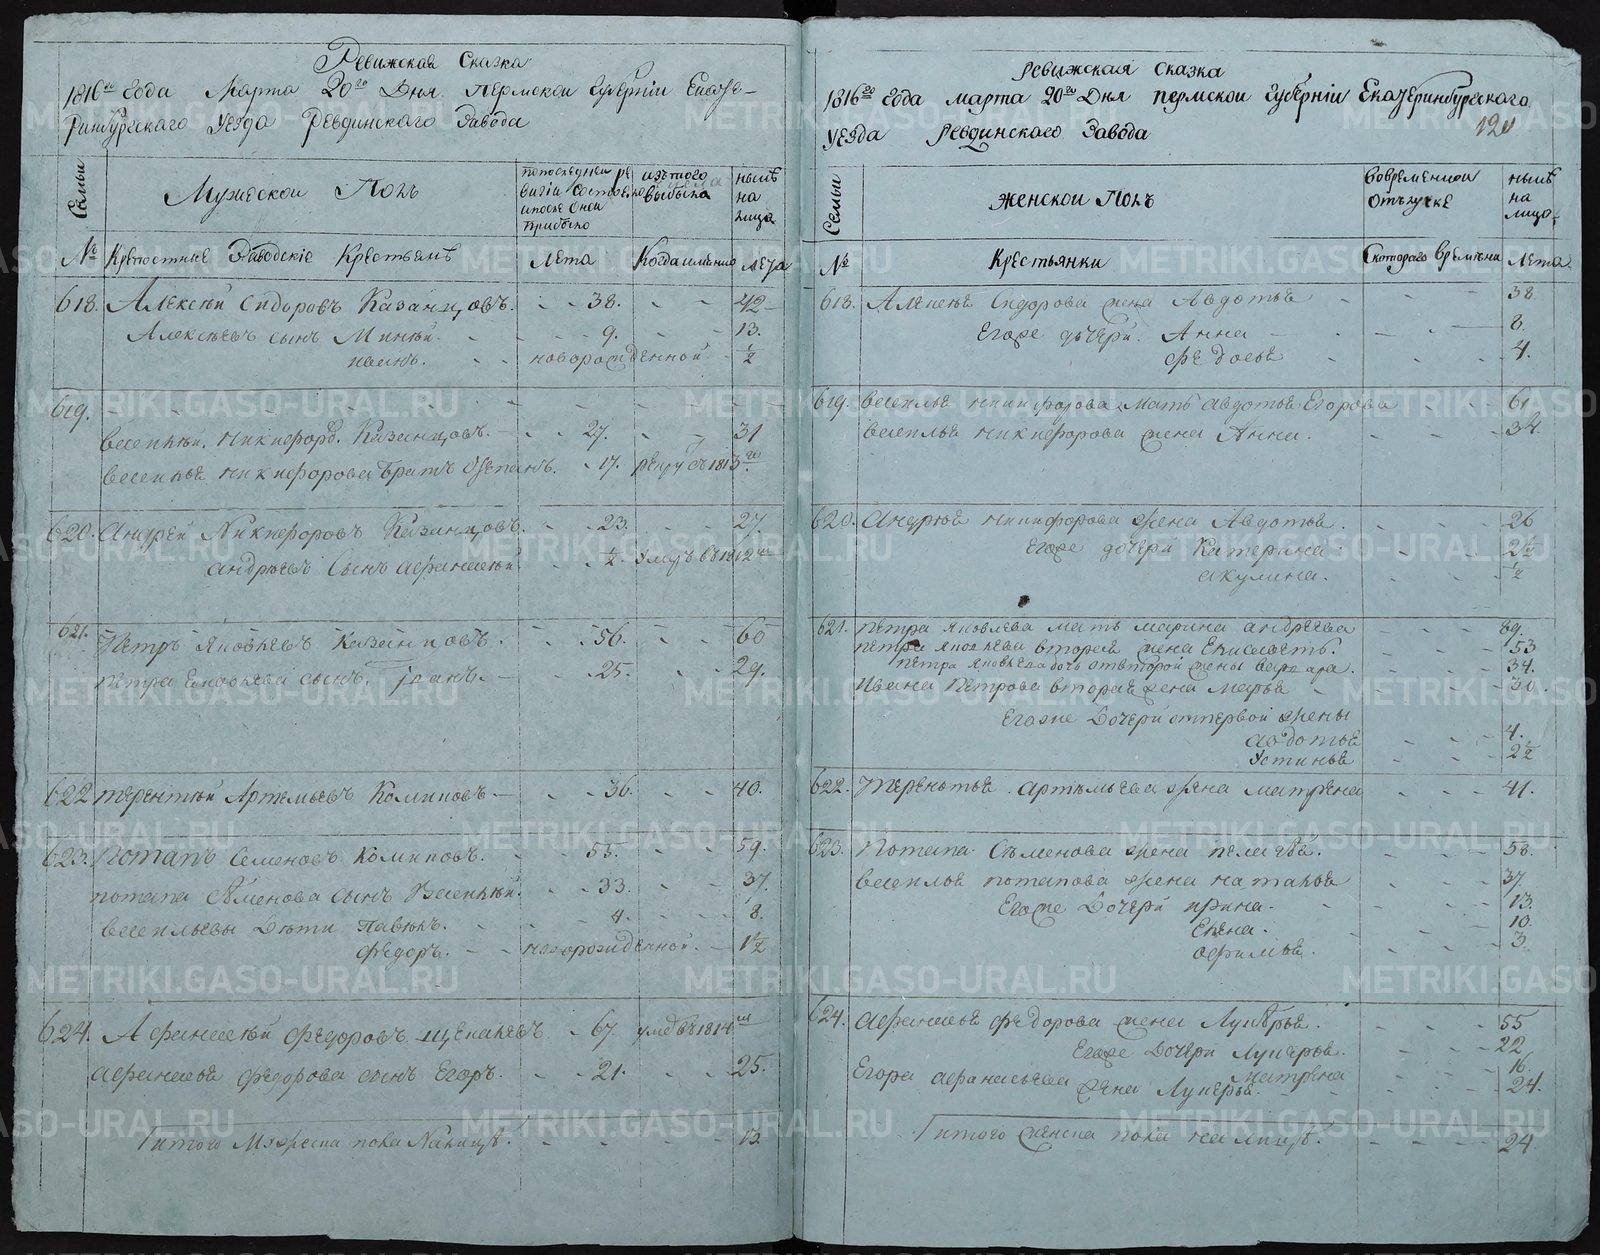 Ревижская Сказка
1816го года Марта 20го Дня Пермской Губернiи Екате-
ринбургскаго уезда Ревдинскаго Завода
Семьи
Мужеской Полъ
попоследней ре
визiи состояло
ипосле оной
прибыло
изътого
выбыло
ныне
на
лицо
№ Крепостные Заводскiе Крестьяне
Лета
Когда имянно
лета
618. Алексей Сидоровъ Казанцовъ. - - 38. - - 42
Алексеевъ сынъ Миней. - - 9. - - 13.
новорожденной - 1/2
619. - - - - - - - -
Василей. Никифоръ. Казанцовъ. - 27. - - 31
Василья Никифорова братъ Степанъ. - 17. рекрутъ 1813го
620. Андрей Никифоровъ Казанцовъ. - - 23. - - 27.
андреевъ сынъ афанасей. - - 1/2. умръ въ 1812мъ
621. Петръ Яковлевъ Казанцовъ. - - 56. - - 60
петра Яковлева сынъ. Iванъ. - - 25. - - 29.
622 терентей Артемьевъ Коминовъ - - 36. - - 40.
623. Потапъ Семеновъ Коминовъ. - - 55. - - 59.
потапа Семенова сынъ Василей. - - 33. - - 37.
васильевы Дети Павелъ. - - 4. - - 8.
Федоръ. - - новорожденной. - 1 1/2
624. Афанасей Федоровъ щепалевъ - 67. умръ въ 1814мъ
афанасья федорова сынъ Егоръ. - - 21. - - 25.
итого мужеска пола Налице. - - - - 13.
Ревижская Сказка
1816го года марта 20го Дня пермской Губернiи Екатеринбургскаго
120
уезда Ревдинскаго Завода
Семьи
Женской Полъ
вовременной
отълучке
ныне
на
лицо
№
Крестьянки
Скотораго времяни
Лета
618. Алексея Сидорова жена Авдотья - - - 38.
Егоже дочери. Анна - - - 8.
Федосья - - - 4.
619. василья никифорова мать авдотья Егорова - - 61
василья никифорова жена Анна. - - - 34.
620. Андрея никифорова жена Авдотья. - - - 26
Егоже дочери Катерина. - - - 2 1/2
акулина. - - - 1/2
621. петра яковлева мать марина андреева - - - 89.
петра яковлева вторая жена Елисаветъ. - - - 53
петра яковлева дочь отвторой жены варвара. - - - 34.
Ивана Петрова вторая жена марья - - - 30.
Егоже Дочери отпервой жены
авдотья - - - 4.
Устинья - - - 2 1/2
622. Терентья артемьева жена матрена - - - 41.
623. Потапа Семенова жена пелагея. - - - 58.
василья потапова жена наталья - - - 37
Егоже Дочери ирина. - - - 13.
Елена. - - - 10.
афимья. - - - 3.
624. афанасья федорова жена Лукерья. - - - 55
Егоже Дочери Лукерья. - - - 22
Матрена - - - 16.
Егора афанасьева жена Лукерья. - - 24.
итого женска пола налице. - - - 24